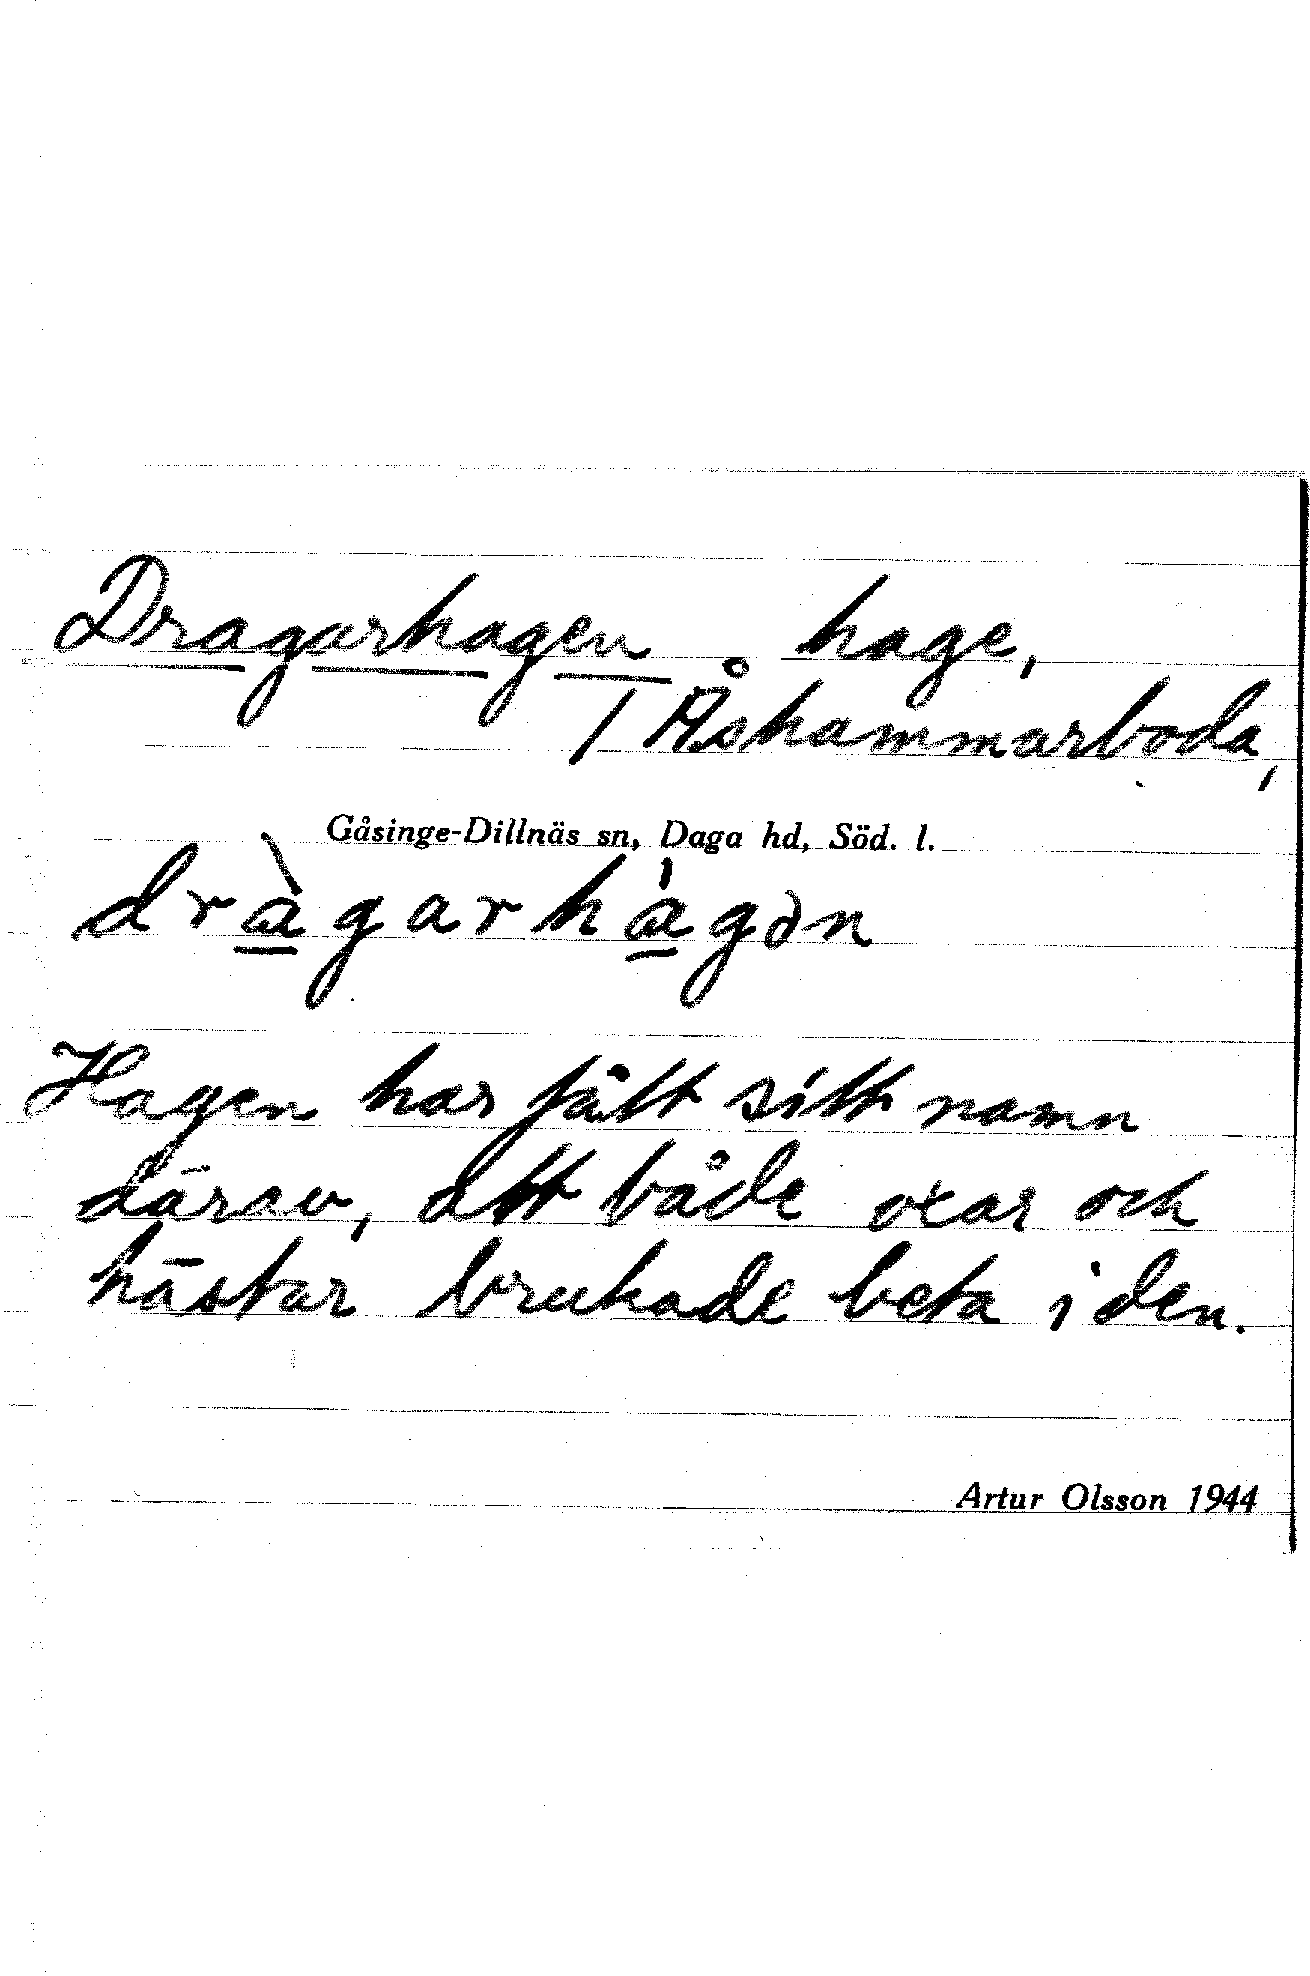 Dragarhagen hage,
/ Åskammarboda,
Gåsinge-Dillnäs sn, Daga hd, Söd. l.
dràgarhágən
Hagen har fått sitt namn
därav, att både oxar och
hästar brukade beta i den.
Artur Olsson 1944